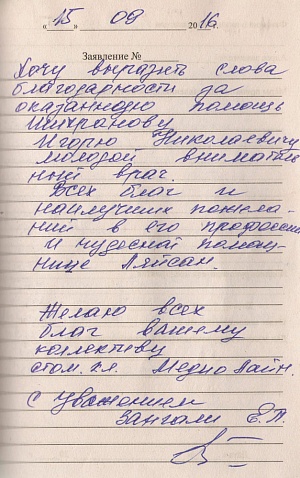 «15» 09 2016 г.
Заявление №
Хочу выразить слова
благодарности за
оказанную помощь
Игорю Николаевичу
молодой вниматель
ный врач.
Всех благ и
наилучших пожела-
ний в его профессии
и чудесной помощ-
нице Ляйсан.
Желаю всех
благ вашему
коллективу
стом. кл. Медио Лайн.
С Уважением
Е. П.